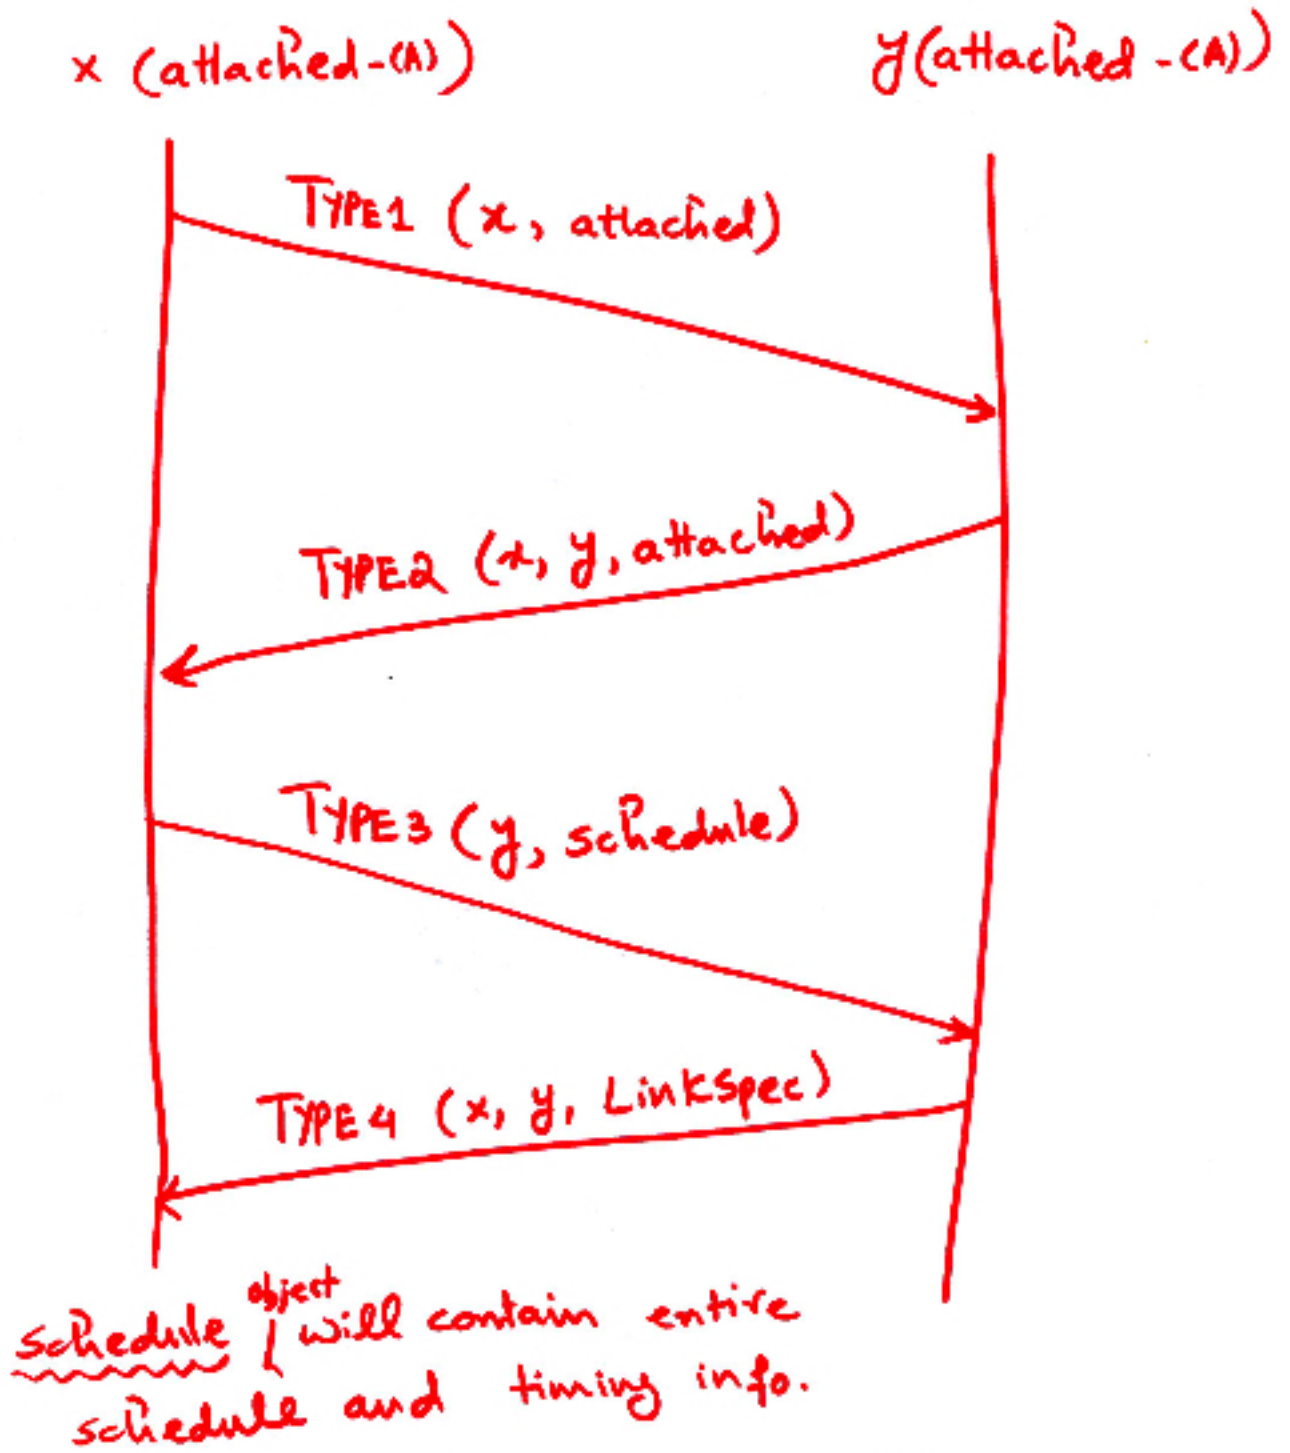 x (attached-(A))
y(attached-(A))
TYPE1 (x, attached)
TYPE2 (x, y, attached)
TYPE3 (y, schedule)
TYPE4 (x, y, LinkSpec)
schedule object will contain entire
schedule and timing info.